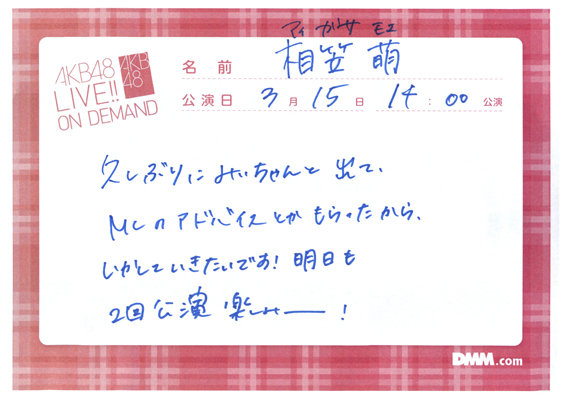 AKB48
LIVE!!
ON DEMAND
AKB
48
アイ がサ モエ
名 前 相笠 萌
公演日 3月 15日 14:00 公演
久しぶりにみぃちゃんと出て、
MCのアドバイスとかもらったから、
いかしていきたいです!明日も
2回公演楽しみー!
DMM.com